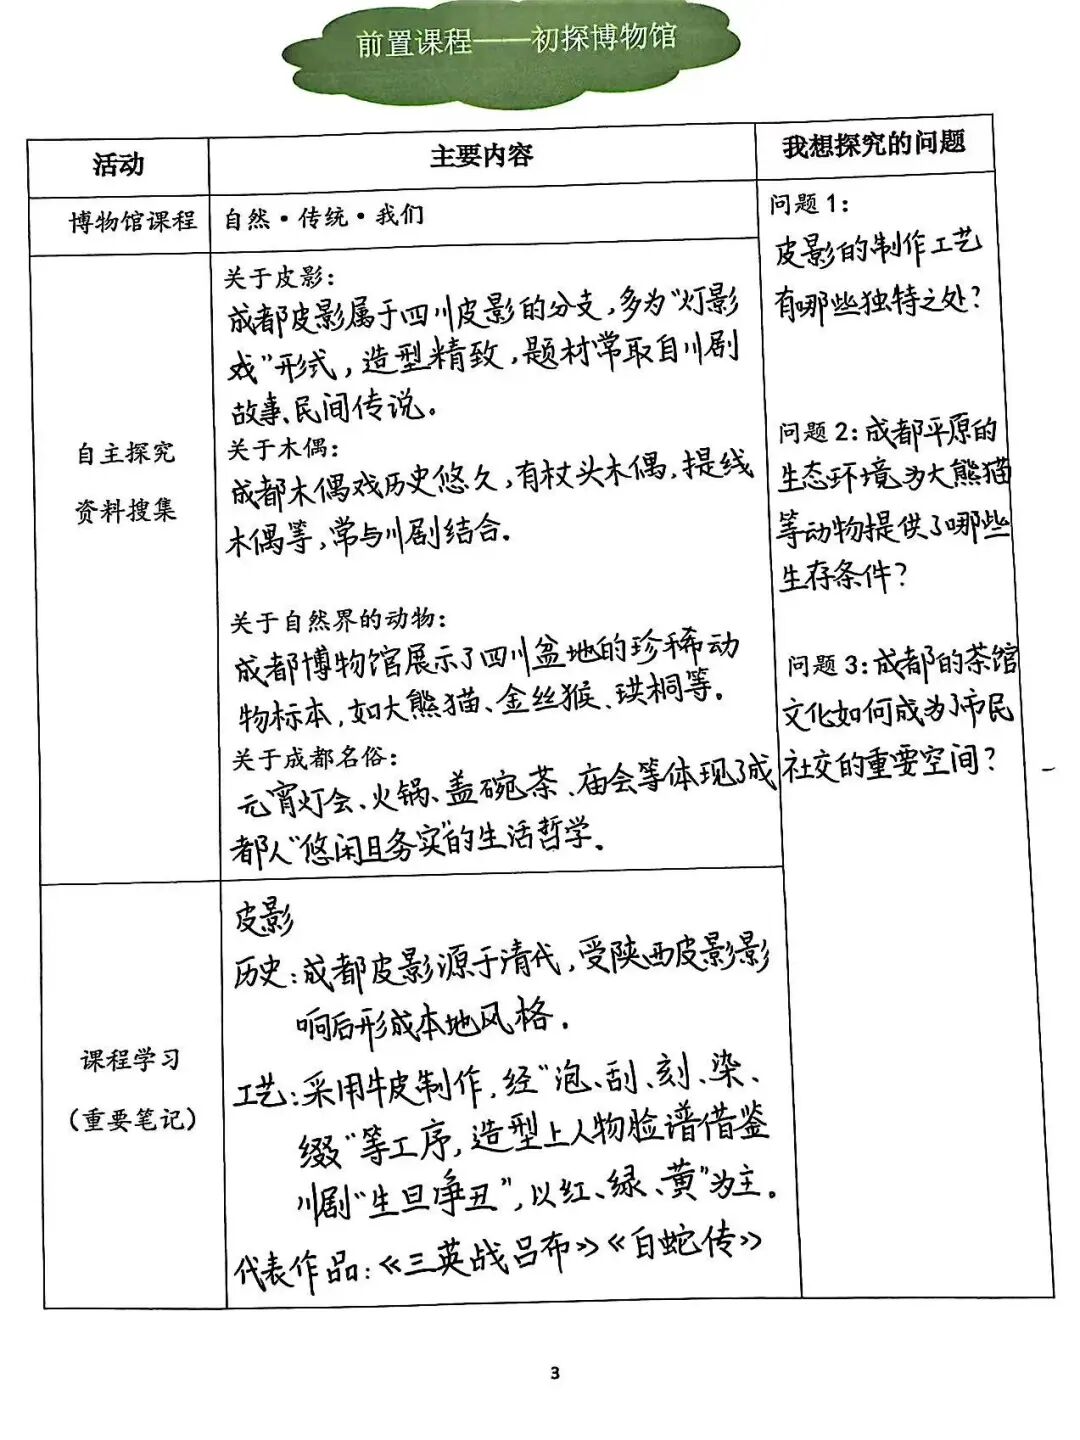 前置课程——初探博物馆
活动
主要内容
我想探究的问题
博物馆课程
自然·传统·我们
自主探究
资料搜集
关于皮影：
成都皮影属于四川皮影的分支，多为“灯影
戏”形式，造型精致，题材常取自川剧
故事、民间传说。
关于木偶：
成都木偶戏历史悠久，有杖头木偶，提线
木偶等，常与川剧结合。
关于自然界的动物：
成都博物馆展示了四川盆地的珍稀动
物标本，如大熊猫、金丝猴、珙桐等。
关于成都名俗：
元宵灯会、火锅、盖碗茶、庙会等体现了成
都人“悠闲且务实”的生活哲学。
课程学习
（重要笔记）
皮影
历史：成都皮影源于清代，受陕西皮影影
响后形成本地风格。
工艺：采用牛皮制作，经“泡、刮、刻、染、
缀”等工序，造型上人物脸谱借鉴
川剧“生旦净丑”，以红、绿、黄”为主。
代表作品：《三英战吕布》《白蛇传》
问题1：
皮影的制作工艺
有哪些独特之处？
问题2：成都平原的
生态环境为大熊猫
等动物提供了哪些
生存条件？
问题3：成都的茶馆
文化如何成为了市民
社交的重要空间？
3